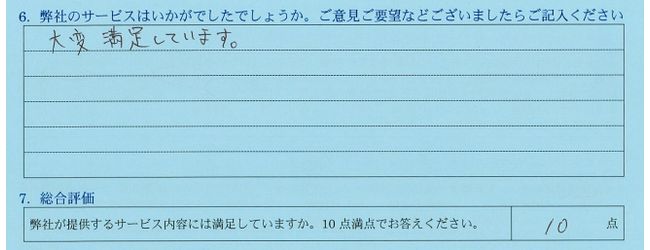 6. 弊社のサービスはいかがでしたでしょうか。ご意見ご要望などございましたらご記入ください
大変満足しています。
7. 総合評価
弊社が提供するサービス内容には満足していますか。10点満点でお答えください。 10 点